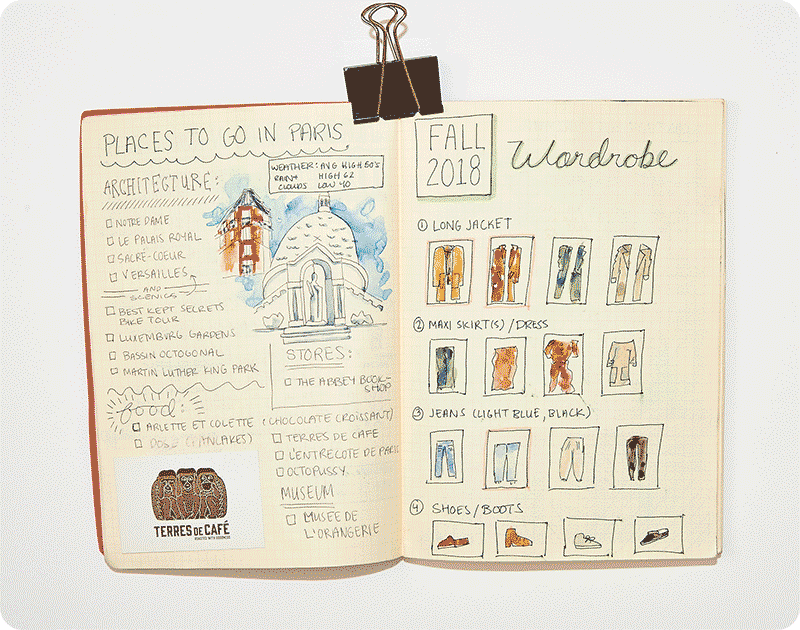 PLACES TO GO IN PARIS
WEATHER: AVG HIGH 50's
RAIN + HIGH 62
CLOUDS LOW 40
ARCHITECTURE:
NOTRE DAME
LE PALAIS ROYAL
SACRÉ-COEUR
VERSAILLES
AND
SCENICS
BEST KEPT SECRETS
BIKE TOUR
LUXEMBURG GARDENS
BASSIN OCTOGONAL
MARTIN LUTHER KING PARK
STORES:
THE ABBEY BOOK-
SHOP
food:
ARLETTE ET COLETTE (CHOCOLATE CROISSANT)
DOSE (PANCAKES)
TERRES DE CAFE
L'ENTRECOTE DE PARIS
OCTOPUSSY
MUSEUM
MUSEE DE
L'ORANGERIE
TERRES DE CAFÉ
FALL
2018
Wardrobe
1 LONG JACKET
2 MAXI SKIRT(S)/DRESS
3 JEANS (LIGHT BLUE, BLACK)
4 SHOES/BOOTS